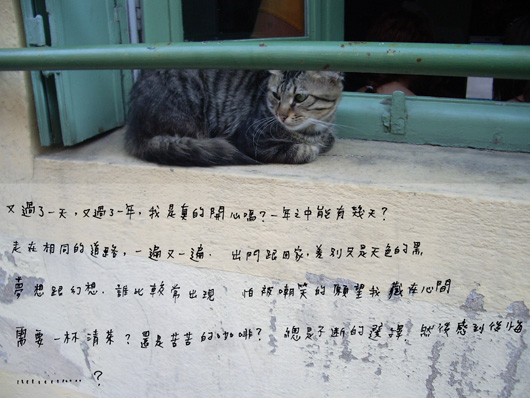 又過了一天,又過了一年,我是真的開心嗎?一年之中能有幾天?
走在相同的道路,一遍又一遍. 出門跟回家,差別只是天色的黑,
夢想跟幻想.誰比較常出現 怕被嘲笑的願望我藏在心間
需要一杯請茶?還是苦苦的咖啡? 總是不斷的選擇.然後感到後悔
............?